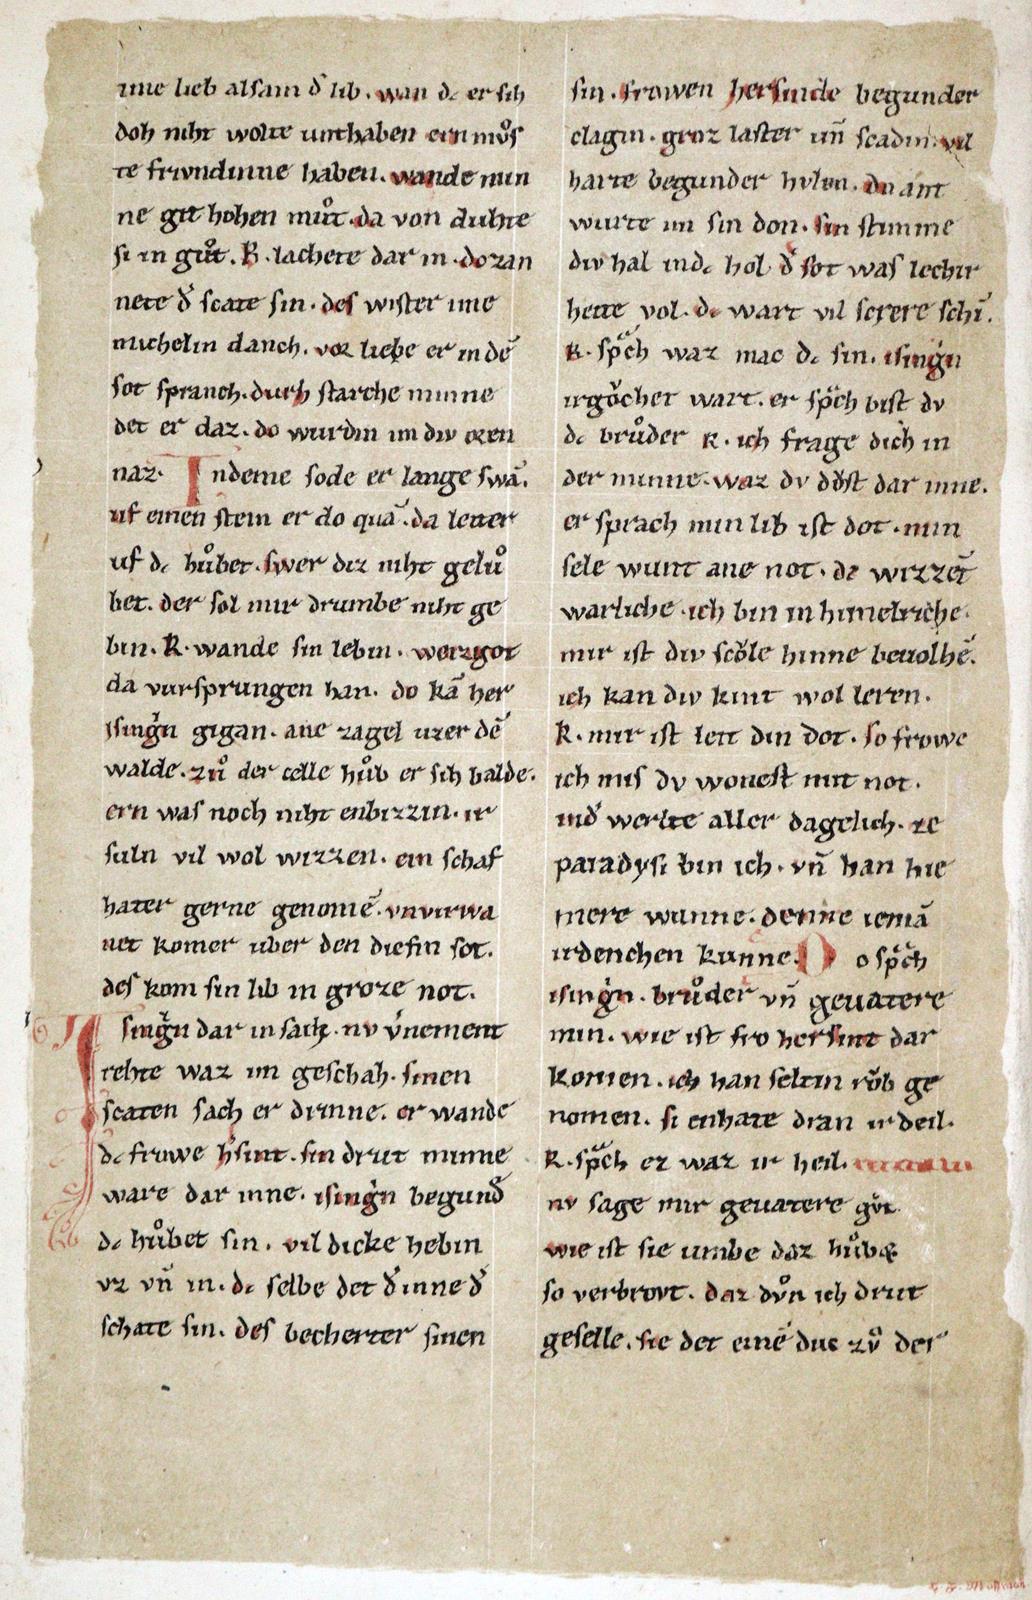 ime lieb alsam d̓ lib. wan dc er sih
doh niht wolte unthaben ern mǒs
te friundinne haben. wande min
ne git hohen mǔt. da von duhte
si in gǔt. R. lachete dar in. do zan
nete d̓ scate sin. des wister ime
michelin danch. vor liebe er in dē
sot spranch. durh starche minne
det er daz. do wurdin im div oren
naz. Indeme sode er lange swā.
uf einen stein er do quā. da leiter
uf dc hǔbet. swer diz niht gelǔ
bet. der sol mir drumbe niht ge
bin. R. wande sin lebin. weizgot
da vursprungen han. do kā her
isingͥn gigan. ane zagel uzer dē
walde. zǔ der celle hǔb er sih balde.
ern was noch niht enbizzin. ir
suln vil wol wizzen. ein schaf
hater gerne genomē. vnvirwa
net komer uber den diefin sot.
des kom sin lib in groze not.
Isingͥn dar in sach. nv v̓nement
rehte waz im geschah. sinen
scaten sach er dirinne. er wande
dc fruwe h̓sint. sin drut minne
ware dar inne. isingͥn begund̓
dc hǔbet sin. vil dicke hebin
vz vn̄ in. dc selbe det d̓ inne d̓
schate sin. des becherter sinen
sin. frowen hersinde begunder
clagin. groz laster un̄ scadin. vil
harte begunder hvlen. do ant
wurte im sin don. sin stimme
div hal in dc hol d̓ sot was lechir
heite vol. dc wart vil screre schī.
R. spͣch waz mac dc sin. isingͥn
irgǒcher wart. er spͣch bist dv
dc brǔder R. ich frage dich in
der minne. waz dv dǒst dar inne.
er sprach min lib ist dot. min
sele wunt ane not. dc wizzēt
warliche. ich bin in himelriche.
mir ist div scǒle hinne beuolhē.
ich kan div kint wol leren.
R. mir ist leit din dot. so frowe
ich mis dv wouest mit not.
ind̓ werlte aller dagelich. ze
paradysi bin ich. vn̄ han hie
mere wunne. denne iemā
irdenchen kunne. Do spͣch
isingͥn. brǔder vn̄ geuatere
min. wie ist fro hersint dar
komen. ich han seltin rǒb ge
nomen. si enhate dran ir deil.
R. spͣch ez waz ir heil.
nv sage mir geuatere gǔt
wie ist sie umbe daz hǔbet
so verbrovt. daz dǔn ich drut
geselle. sie det einē duc zǔ der